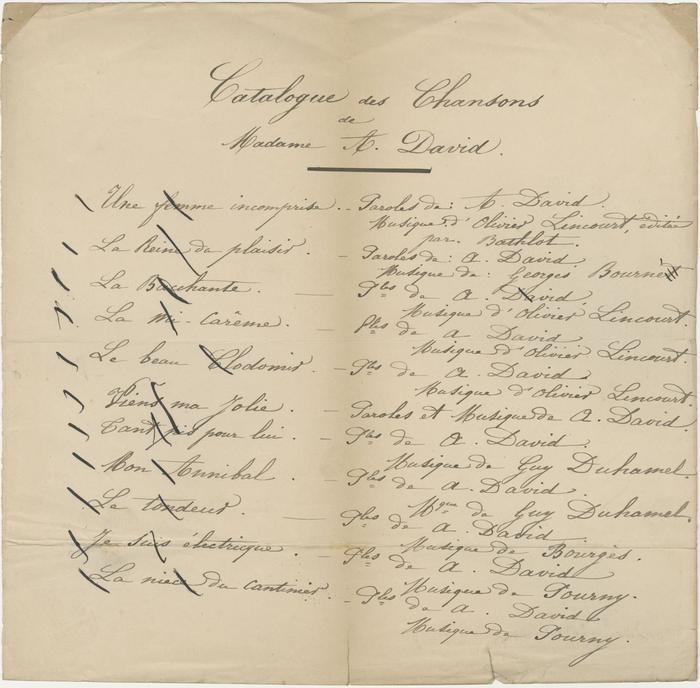 Catalogue des Chansons
de
Madame A. David.
Une femme incomprise. - Paroles de: A. David.
Musique d'Olivier Lincourt, éditée
par. Bathlot.
La Reine du plaisir. - Paroles de: A. David
Musique de: Georges Bournet
La Bachante. - Ples de A. David.
Musique d'Olivier Lincourt.
La mi-carême. - Ples de A David
Musique d'Olivier Lincourt.
Le beau Clodomir. - Ples de A. David
Musique d'Olivier Lincourt
Viens ma Jolie. - Paroles et Musique de A. David.
Tant pis pour lui. - Ples de A. David.
Musique de Guy Duhamel.
Mon Annibal. - Ples de A. David
Mque de Guy Duhamel.
Le tondeur. - Ples de A. David.
Musique de Bourgès.
Je suis électrique. - Ples de A. David
Musique de Pourny.
La nièce du Cantinier. - Ples de A. David
Musique de Pourny.